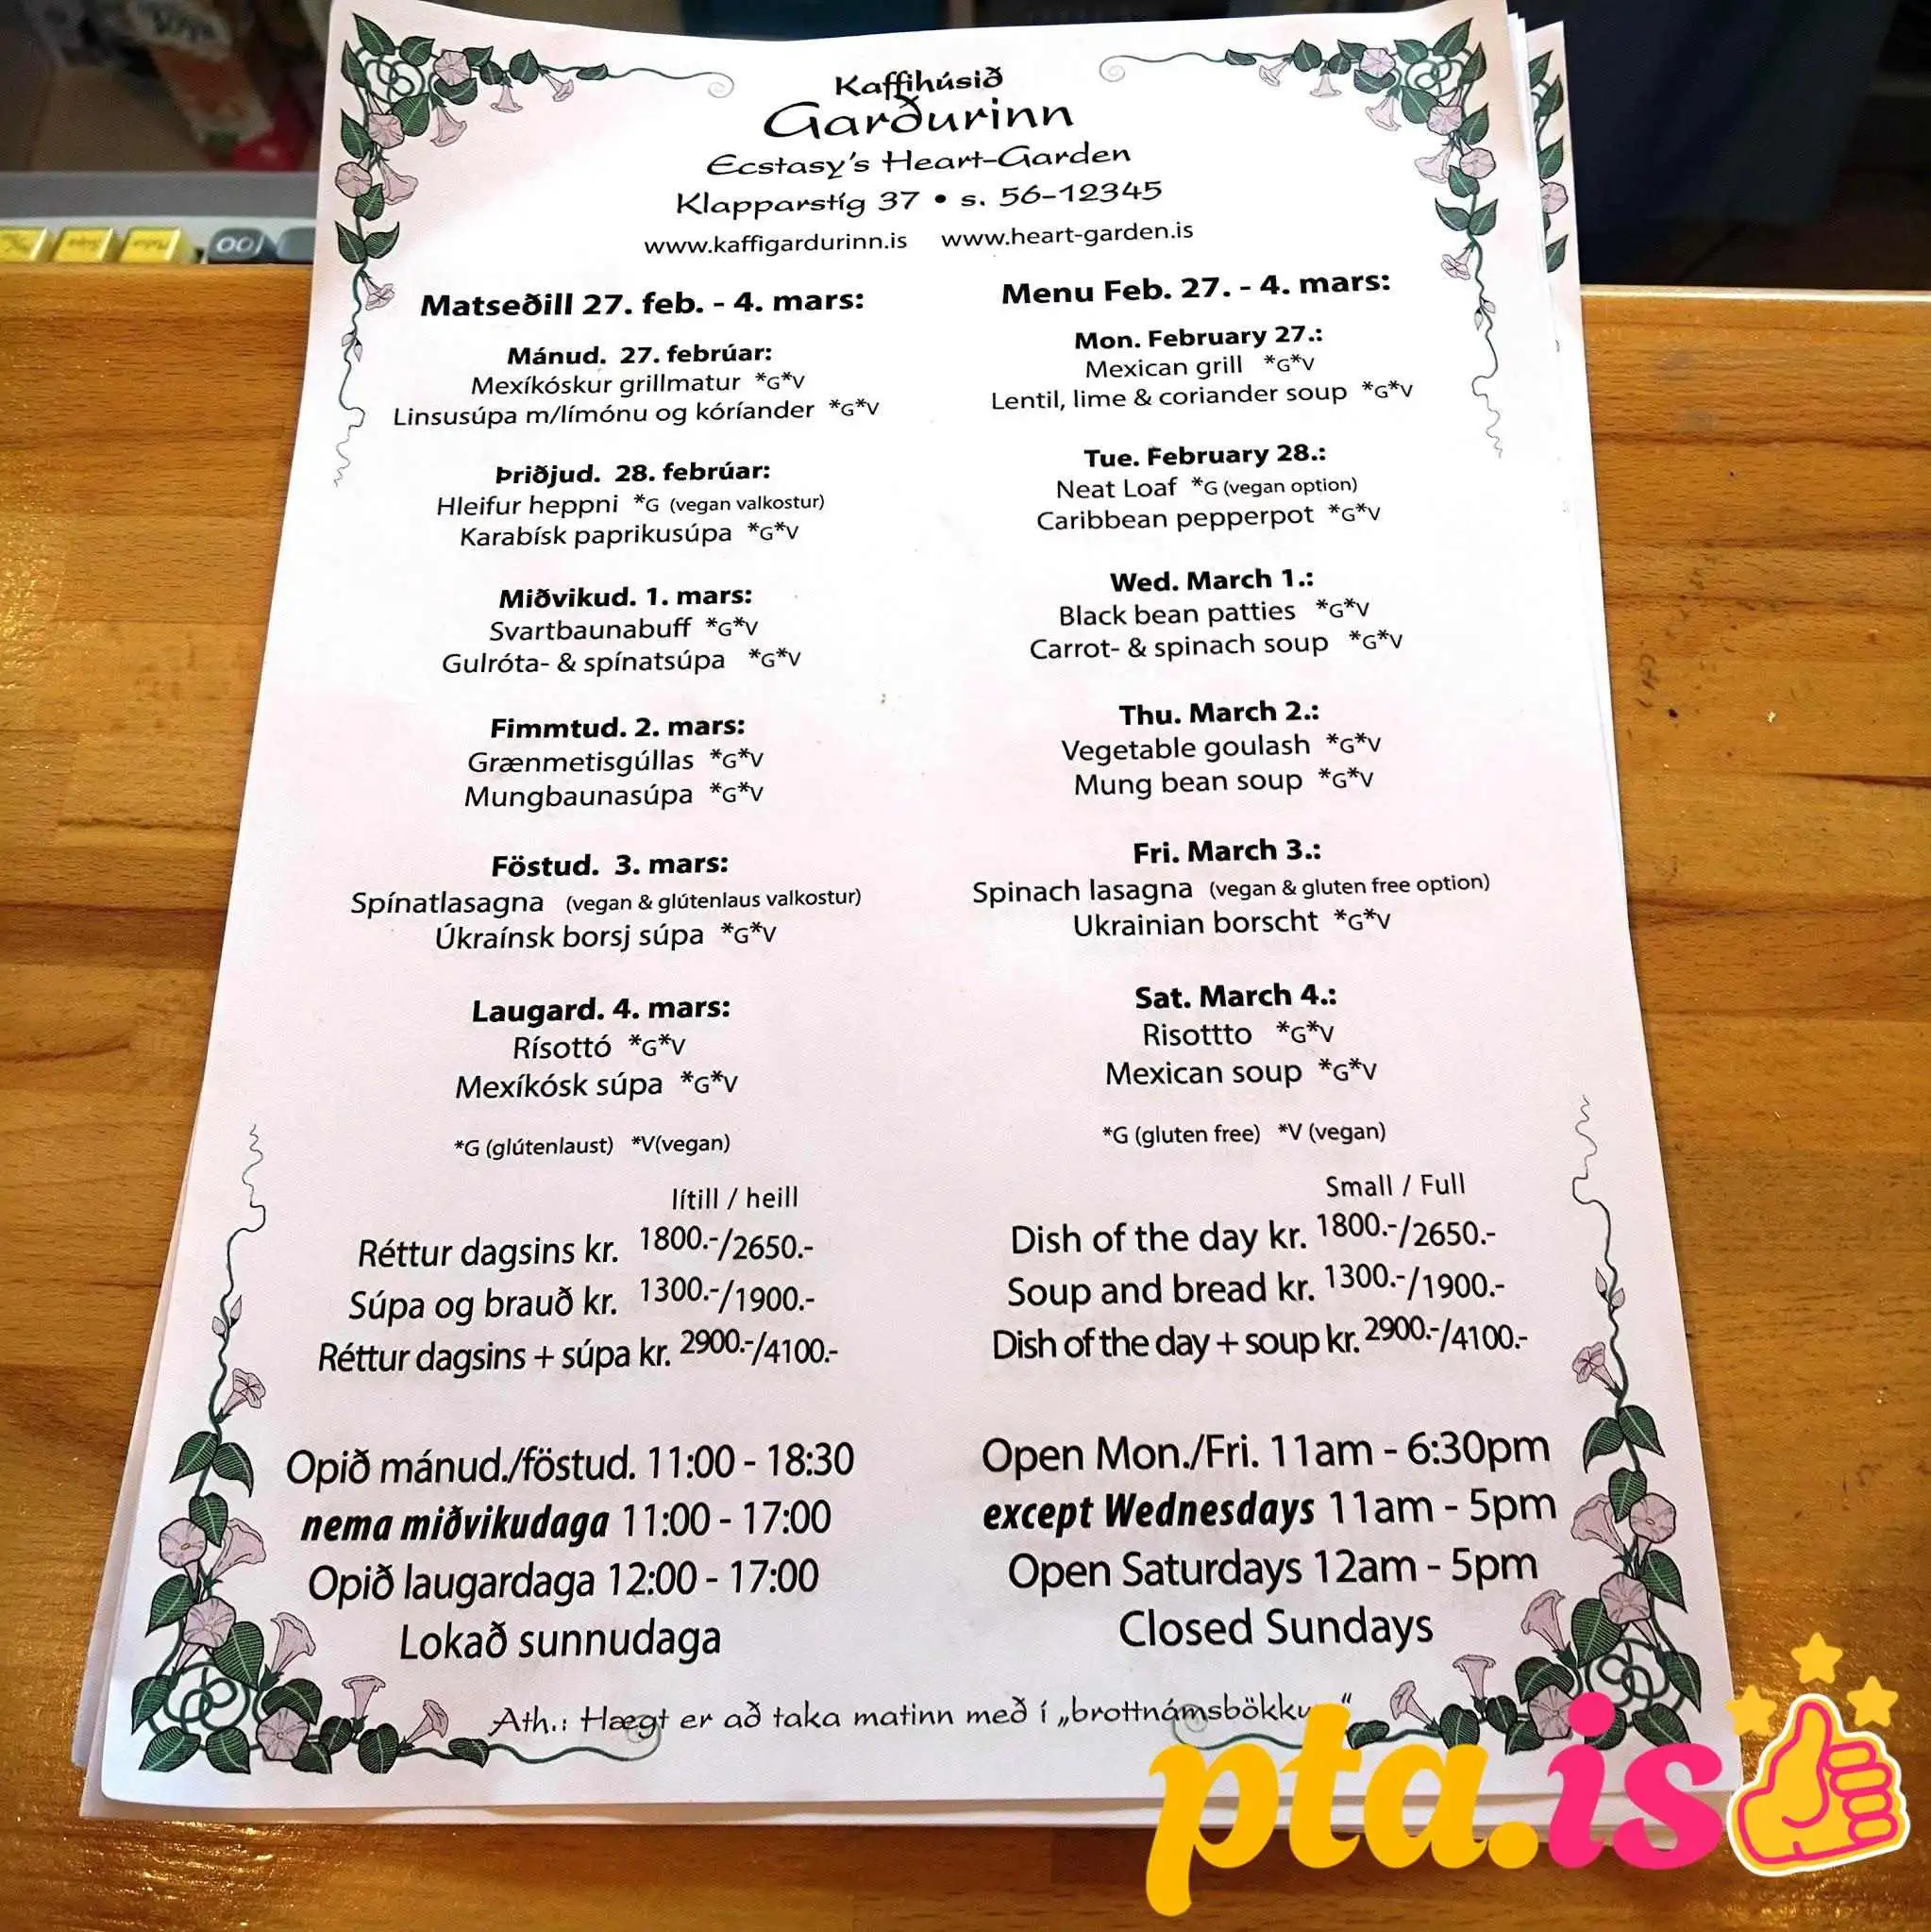 Kaffihúsið
Garðurinn
Ecstasy's Heart-Garden
Klapparstíg 37 • s. 56-12345
www.kaffigardurinn.is www.heart-garden.is
Matseðill 27. feb. - 4. mars:
Mánud. 27. febrúar:
Mexíkóskur grillmatur *G*V
Linsusúpa m/límónu og kóríander *G*V
Þriðjud. 28. febrúar:
Hleifur heppni *G (vegan valkostur)
Karabísk paprikusúpa *G*V
Miðvikud. 1. mars:
Svartbaunabuff *G*V
Gulróta- & spínatsúpa *G*V
Fimmtud. 2. mars:
Grænmetisgúllas *G*V
Mungbaunasúpa *G*V
Föstud. 3. mars:
Spínatlasagna (vegan & glútenlaus valkostur)
Úkraínsk borsj súpa *G*V
Laugard. 4. mars:
Rísottó *G*V
Mexíkósk súpa *G*V
*G (glútenlaust) *V(vegan)
lítill / heill
Réttur dagsins kr. 1800.-/2650.-
Súpa og brauð kr. 1300.-/1900.-
Réttur dagsins + súpa kr. 2900.-/4100.-
Opið mánud./föstud. 11:00 - 18:30
nema miðvikudaga 11:00 - 17:00
Opið laugardaga 12:00 - 17:00
Lokað sunnudaga
Menu Feb. 27. - 4. mars:
Mon. February 27.:
Mexican grill *G*V
Lentil, lime & coriander soup *G*V
Tue. February 28.:
Neat Loaf *G (vegan option)
Caribbean pepperpot *G*V
Wed. March 1.:
Black bean patties *G*V
Carrot- & spinach soup *G*V
Thu. March 2.:
Vegetable goulash *G*V
Mung bean soup *G*V
Fri. March 3.:
Spinach lasagna (vegan & gluten free option)
Ukrainian borscht *G*V
Sat. March 4.:
Risottto *G*V
Mexican soup *G*V
*G (gluten free) *V (vegan)
Small / Full
Dish of the day kr. 1800.-/2650.-
Soup and bread kr. 1300.-/1900.-
Dish of the day + soup kr. 2900.-/4100.-
Open Mon./Fri. 11am - 6:30pm
except Wednesdays 11am - 5pm
Open Saturdays 12am - 5pm
Closed Sundays
Ath.: Hægt er að taka matinn með í
pta.is